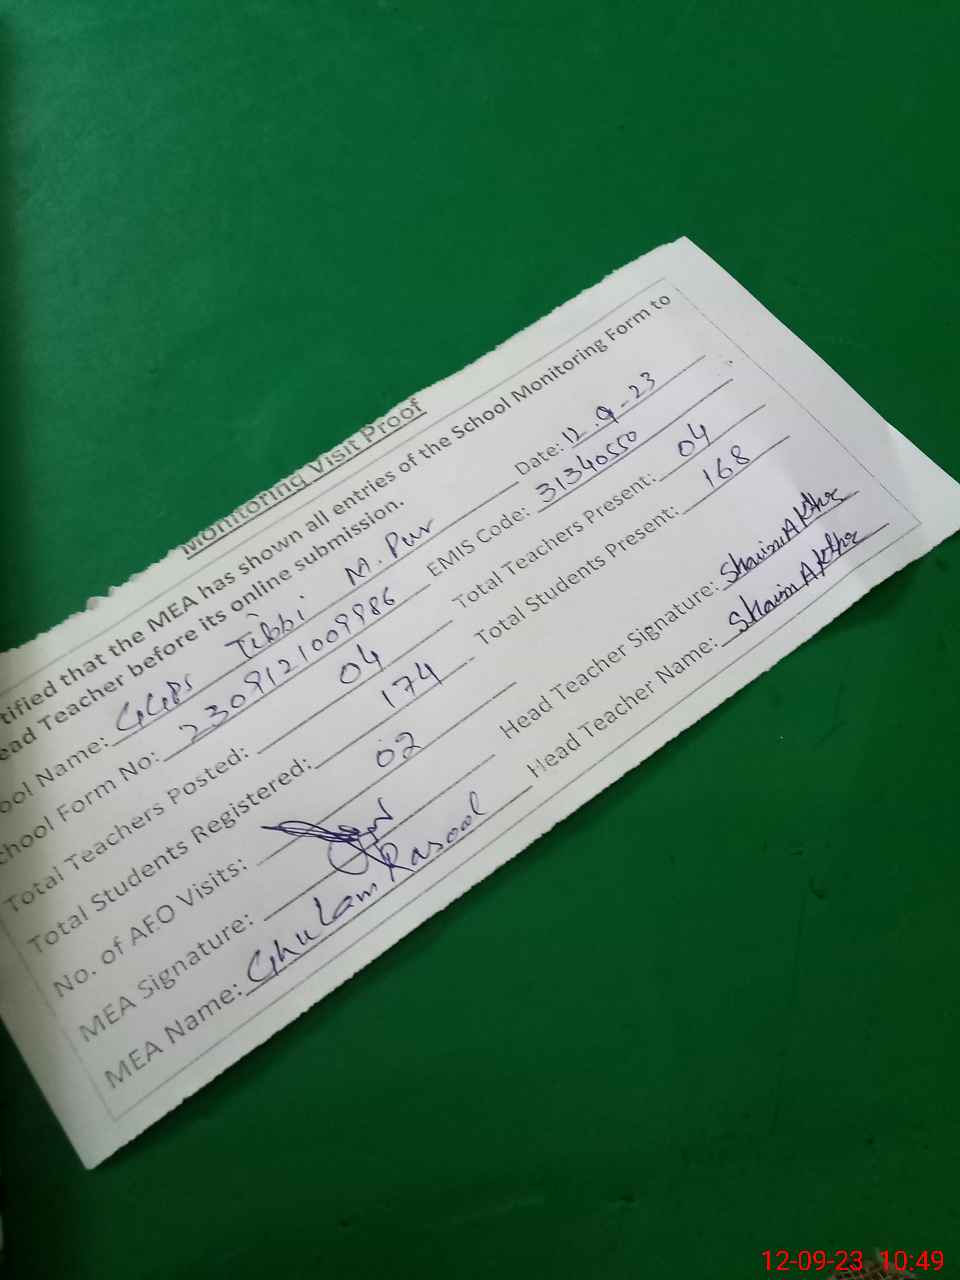 Monitoring Visit Proof
tified that the MEA has shown all entries of the School Monitoring Form to
ead Teacher before its online submission.
ool Name: GGPS Tibbi M. Pur Date: 12-9-23
chool Form No: 2309121009986 EMIS Code: 31340550
Total Teachers Posted: 04 Total Teachers Present: 04
Total Students Registered: 174 Total Students Present: 168
No. of AEO Visits: 02
MEA Signature: Head Teacher Signature: Shaim Akhtr
MEA Name: Ghulam Rasool Head Teacher Name: Shaim Akhtr
12-09-23 10:49